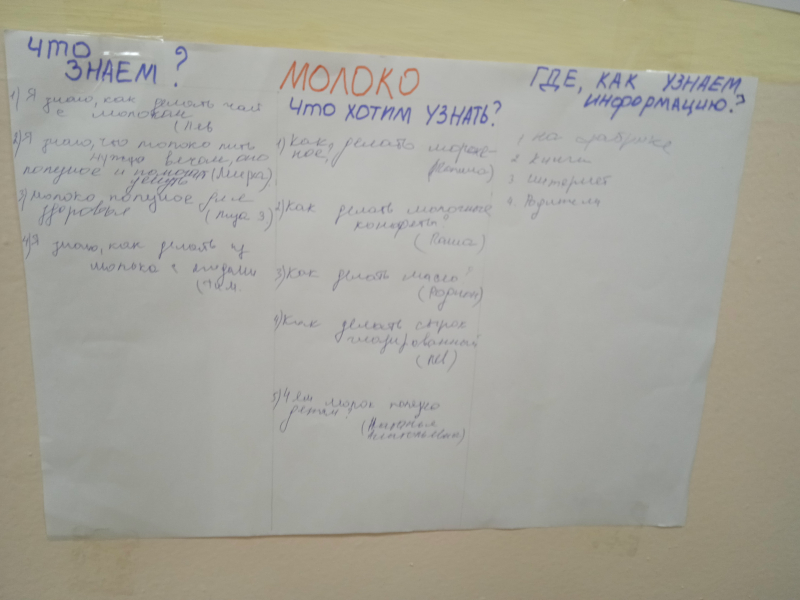 ЧТО
ЗНАЕМ?
1) Я знаю, как делать чай
с молоком
(Лев
2) Я знаю, что молоко пить
нужно вечом, оно
полезное и (Мирха)
3) Молоко полезное для
здоровья (Лиза Я)
4) Я знаю, как делать из
молока с
(Тим.
МОЛОКО
ЧТО ХОТИМ УЗНАТЬ?
1) Как делать мороже-
ное,
2) Как делать молочные
конфеты?
(Паша)
3) Как делать масло?
(Родион)
4) Как делать сырок
глазированный
(Лев)
5) Чем молок полезно
детям?
(Наталья
ГДЕ, КАК УЗНАЕМ
ИНФОРМАЦИЮ?
1. на фабрике
2 книги
3 интернет
4. Родители